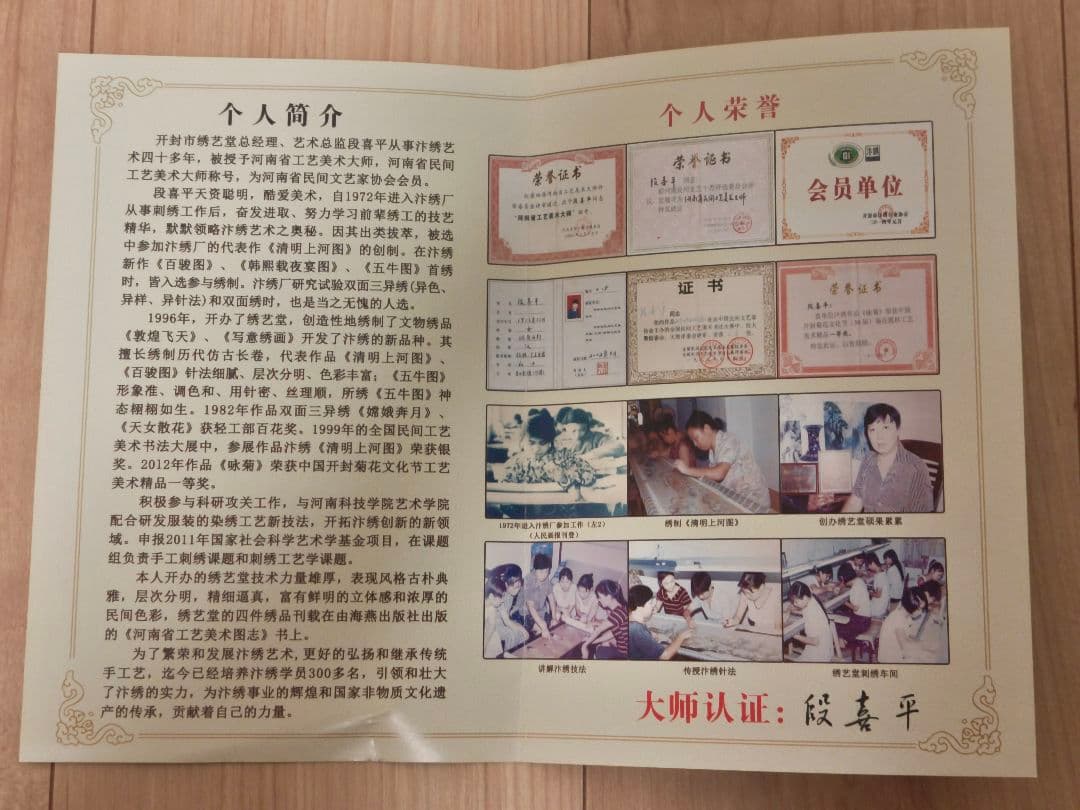 个人简介
开封市绣艺堂总经理、艺术总监段喜平从事汴绣艺
术四十多年，被授予河南省工艺美术大师，河南省民间
工艺美术大师称号，为河南省民间文艺家协会会员。
段喜平天资聪明，酷爱美术，自1972年进入汴绣厂
从事刺绣工作后，奋发进取、努力学习前辈绣工的技艺
精华，默默领略汴绣艺术之奥秘。因其出类拔萃，被选
中参加汴绣厂的代表作《清明上河图》的创制。在汴绣
新作《百骏图》、《韩熙载夜宴图》、《五牛图》首绣
时，皆入选参与绣制。汴绣厂研究试验双面三异绣(异色、
异样、异针法)和双面绣时，也是当之无愧的人选。
1996年，开办了绣艺堂，创造性地绣制了文物绣品
《敦煌飞天》、《写意绣画》开发了汴绣的新品种。其
擅长绣制历代仿古长卷，代表作品《清明上河图》、
《百骏图》针法细腻、层次分明、色彩丰富；《五牛图》
形象准、调色和、用针密、丝理顺，所绣《五牛图》神
态栩栩如生。1982年作品双面三异绣《嫦娥奔月》、
《天女散花》获轻工部百花奖。1999年的全国民间工艺
美术书法大展中，参展作品汴绣《清明上河图》荣获银
奖。2012年作品《咏菊》荣获中国开封菊花文化节工艺
美术精品一等奖。
积极参与科研攻关工作，与河南科技学院艺术学院
配合研发服装的染绣工艺新技法，开拓汴绣创新的新领
域。申报2011年国家社会科学艺术学基金项目，在课题
组负责手工刺绣课题和刺绣工艺学课题。
本人开办的绣艺堂技术力量雄厚，表现风格古朴典
雅，层次分明，精细逼真，富有鲜明的立体感和浓厚的
民间色彩，绣艺堂的四件绣品刊载在由海燕出版社出版
的《河南省工艺美术图志》书上。
为了繁荣和发展汴绣艺术,更好的弘扬和继承传统
手工艺，迄今已经培养汴绣学员300多名，引领和壮大
了汴绣的实力，为汴绣事业的辉煌和国家非物质文化遗
产的传承，贡献着自己的力量。
个人荣誉
荣誉证书
荣誉证书
会员单位
证书
荣誉证书
1972年进入汴绣厂参加工作（左2）
（人民画报刊登）
绣制《清明上河图》
创办绣艺堂硕果累累
讲解汴绣技法
传授汴绣针法
绣艺堂刺绣车间
大师认证：段喜平